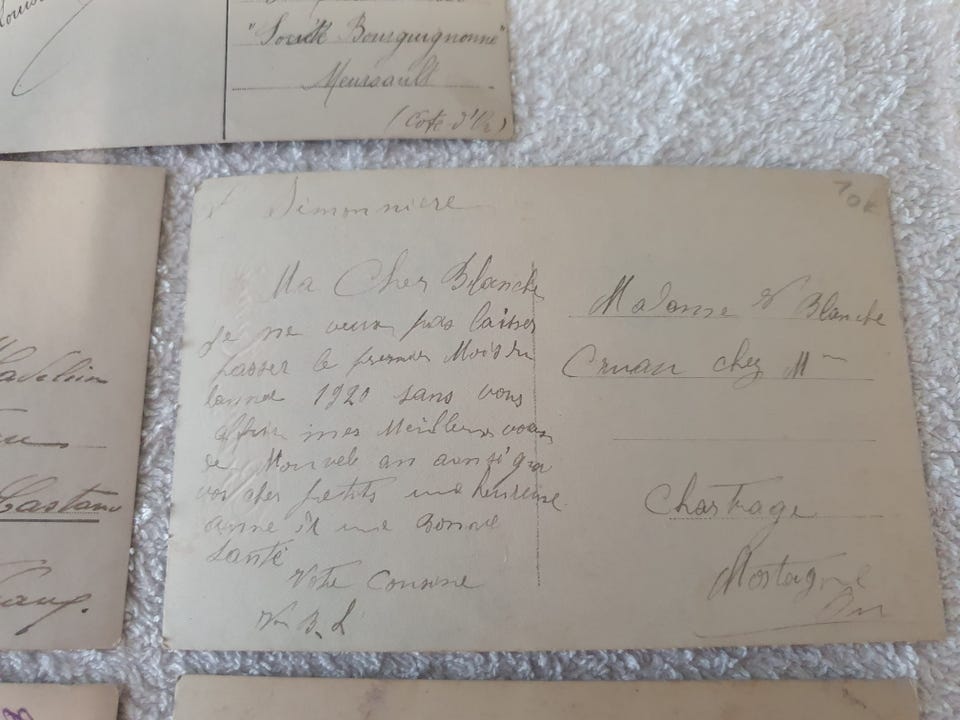 "Société Bourguignonne"
Meursault
(Cote d'Or)
Simonniere
10€
Ma Cher Blanche
Je ne veux pas laisser
passer le premier Mois du
1920 sans vous
mes Meilleurs voeux
de Nouvele an ainsi qua
vos cher petits une heureuse
anne et une Bonne
Santé
Votre Cousine
Vve B. L
Madame Vve Blanche
Cruau chez Mme
Chartrage
Mortagne